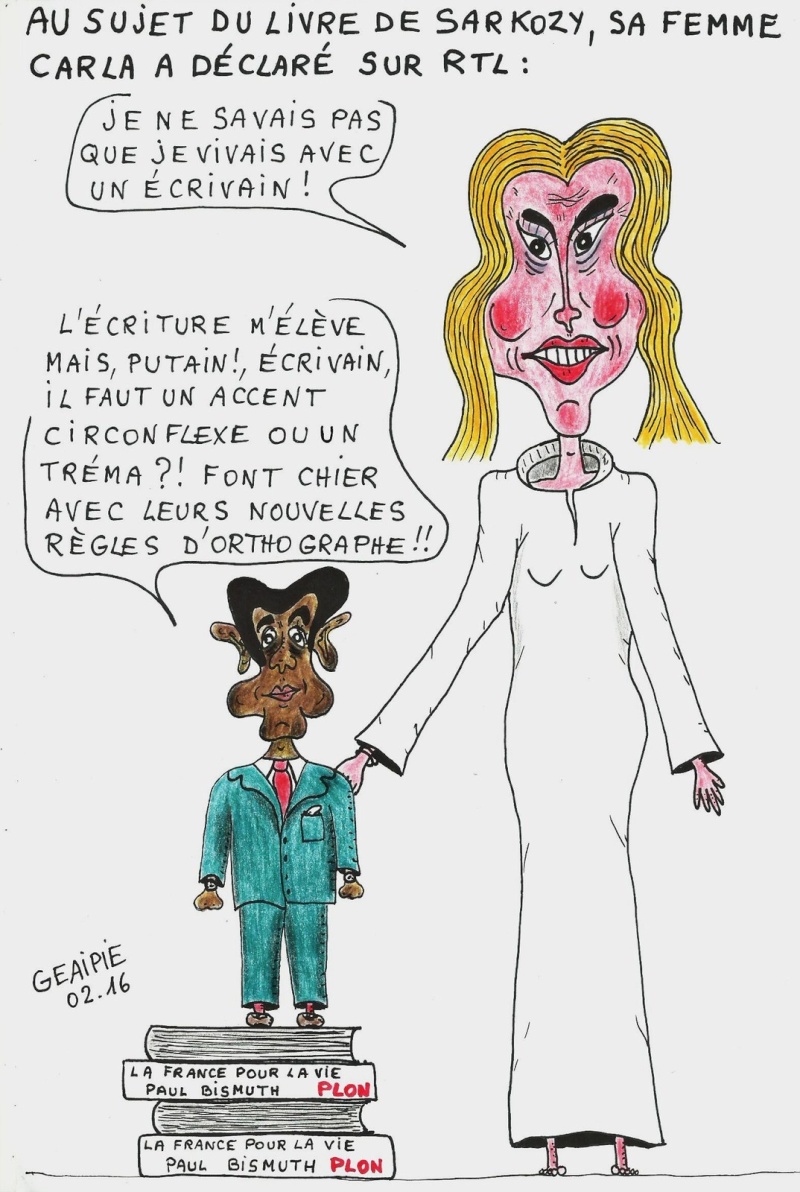 AU SUJET DU LIVRE DE SARKOZY, SA FEMME
CARLA A DÉCLARÉ SUR RTL :
JE NE SAVAIS PAS
QUE JE VIVAIS AVEC
UN ÉCRIVAIN !
L'ÉCRITURE M'ÉLÈVE
MAIS, PUTAIN !, ÉCRIVAIN,
IL FAUT UN ACCENT
CIRCONFLEXE OU UN
TRÉMA ?! FONT CHIER
AVEC LEURS NOUVELLES
RÈGLES D'ORTHOGRAPHE !!
GEAIPIE
02.16
LA FRANCE POUR LA VIE
PAUL BISMUTH PLON
LA FRANCE POUR LA VIE
PAUL BISMUTH PLON